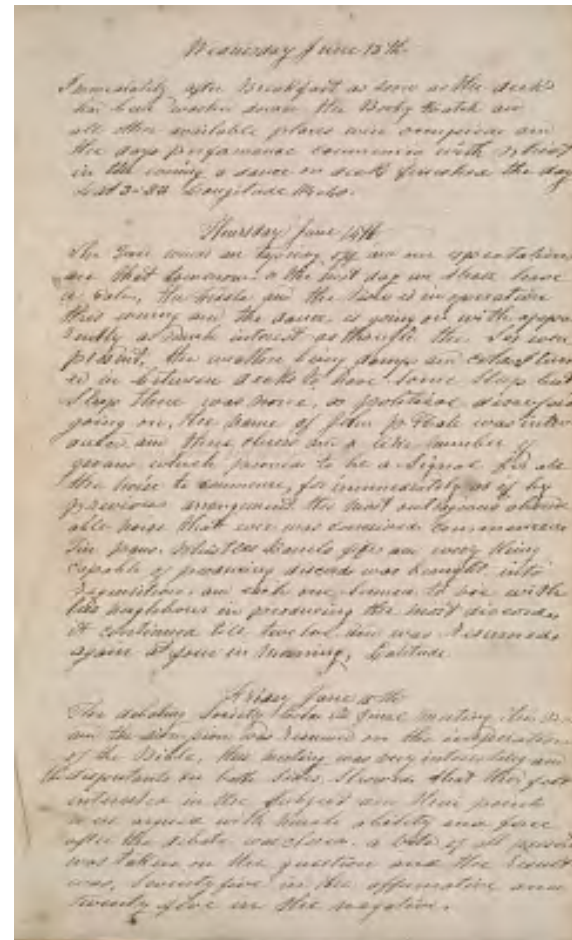 Wednesday June 13th
Immediately after Breakfast as soon as the decks
had been washed down the Booby Hatch and
all other available places were occupied and
the days performance commenced with
in the evening a dance on deck finished the day
Longitude
Thursday June 14th
The Trade winds are off and our expectations
are that tomorrow or the next day we shall have
a Calm, the Fiddle and the is in operation
this evening and the dance is going on with appa
rently as much interest as though the were
present, the weather being damp and turn
ed in between decks to have some Sleep but
Sleep there was none, a political discussion
going on, the name of John P Hale was
and three cheers and a like number of
groans which proved to be a Signal for all
the noise to commence, for immediately as if by
previous arrangement the most outrageous
able noise that ever was conceived commenced
Tin pans, Whistles and every thing
capable of producing discord was brought into
requisition, and each one seemed to vie with
his neighbour in producing the most discord,
it continued till twelve and was resumed
again at four in morning, Latitude
Friday June 15th
The debating Society held its meeting
and the discussion was resumed on the inspiration
of the Bible, this meeting was very interesting and
the disputants on both sides showed that they felt
interested in the subject and their points
were argued with much ability and force
after the debate was closed, a vote of all present
was taken on the question and the result
was, Seventy five in the affirmative and
twenty five in the negative.